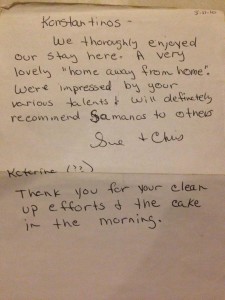 Konstantinos -
We thoroghly enjoyed
our stay here. A very
lovely "home away from home".
Were impressed by your
various talents & will definetely
recommend Samanas to others
Sue & Chris
Katerina (??)
Thank you for your clean
up efforts & the cake
in the morning.